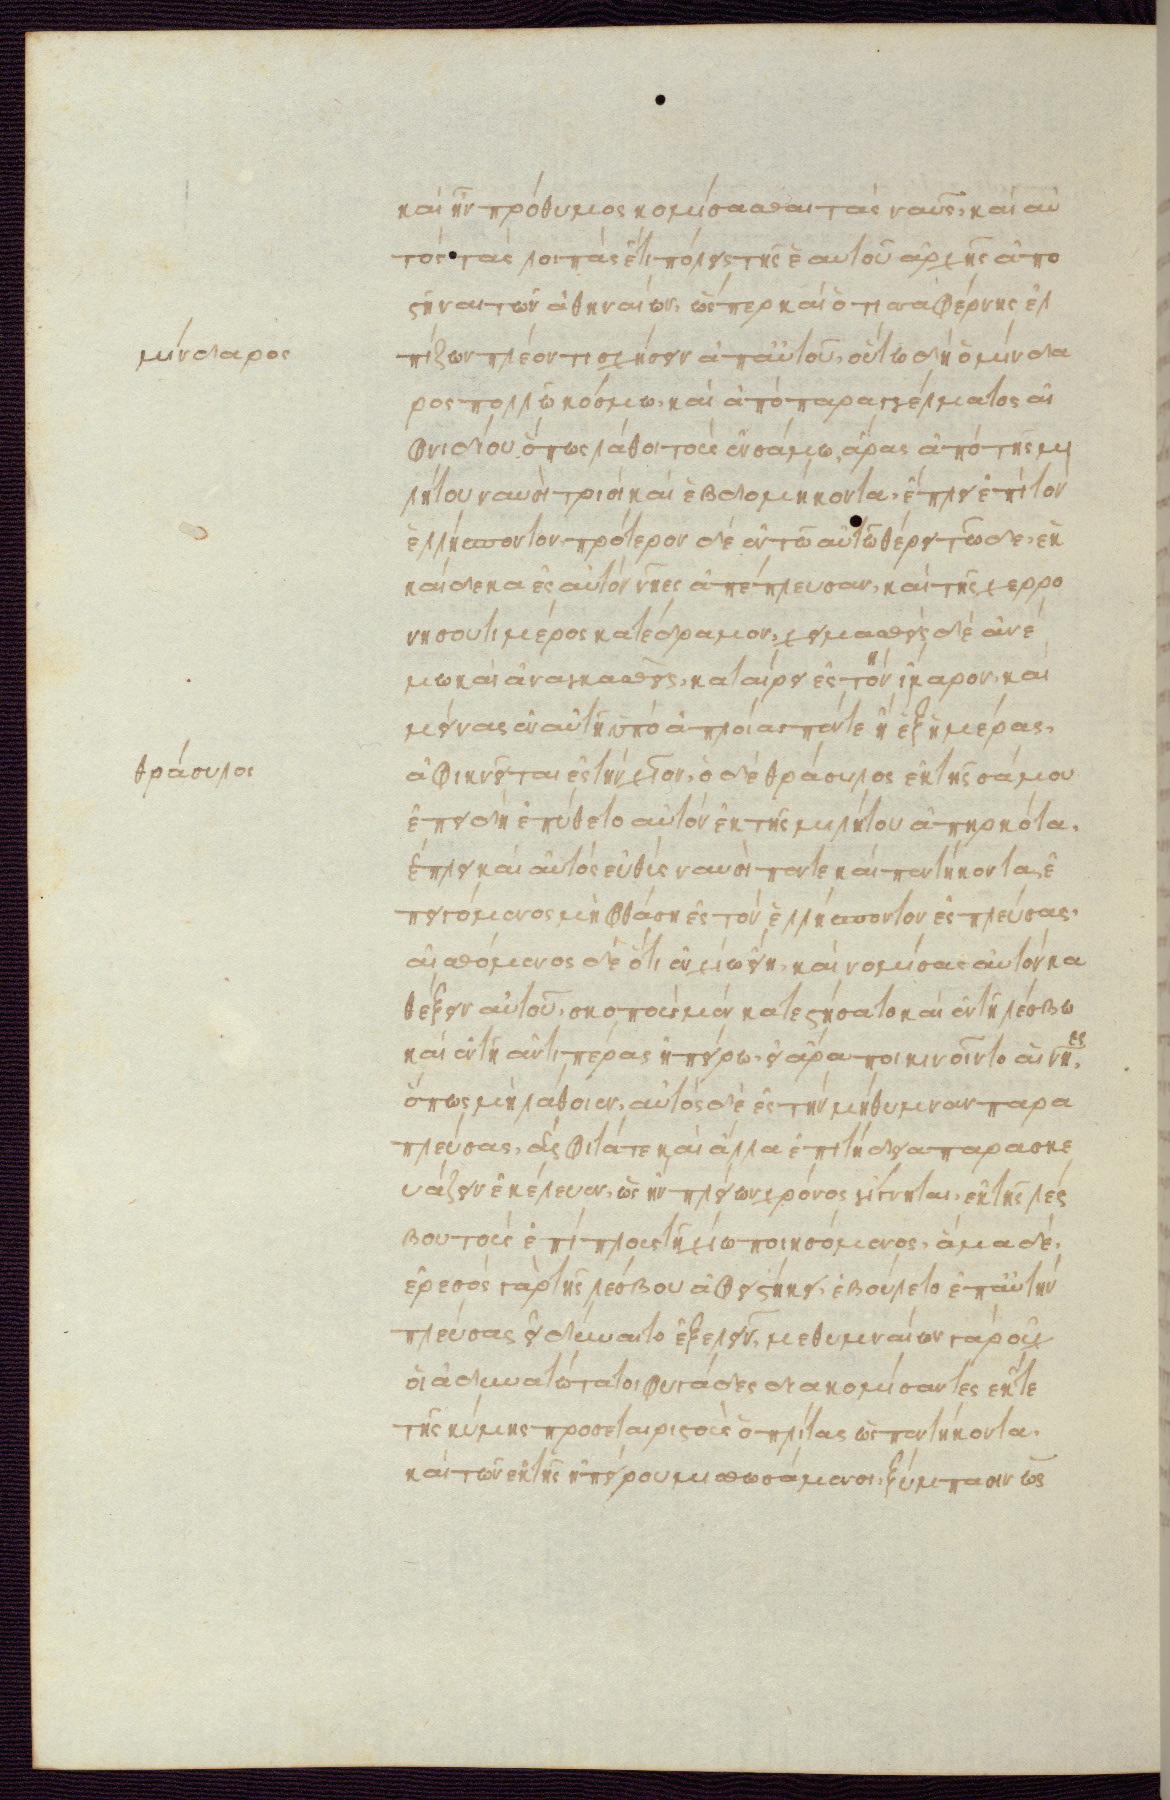 καὶ ἦν πρόθυμος κομίσας τὰς ναῦς, καὶ αὐ
τὸς τὰς λοιπὰς ἔτι πόλεις τῆς ἑαυτοῦ ἀρχῆς ἀπο
στῆναι τῶν ἀθηναίων, ὥσπερ καὶ ὁ τισσαφέρνης ἐλ
μίνδαρος
πίζων πλέον τι σχήσειν ἀπ αὐτοῦ, οὕτω δὴ ὁ μίνδα
ρος πολλῶ κόσμω, καὶ ἀπὸ παραγγέλματος αἰ
φνιδίου ὅπως λάθοι τοὺς ἐν σάμω, ἄρας ἀπὸ τῆς μι
λήτου ναυσὶ τρισὶ καὶ ἑβδομήκοντα, ἔπλει ἐπὶ τὸν
ἑλλήσποντον, πρότερον δὲ ἐν τῶ αὐτῶ θέρει τῶδε, ἑκ
καίδεκα ἐς αὐτὸν νῆες ἀπέπλευσαν, καὶ τῆς χερρο
νήσου τι μέρος κατέδραμον, χειμασθεὶς δὲ ἀνέ
μω καὶ ἀναγκασθεὶς, καταίρει ἐς τὴν ἴκαρον, καὶ
μείνας ἐν αὐτῆ ὑπὸ ἀπλοίας πέντε ἢ ἓξ ἡμέρας,
θράσυλος
ἀφικνεῖται ἐς τὴν χῖον, ὁ δὲ θράσυλος ἐκ τῆς σάμου
ἐπειδὴ ἐπύθετο αὐτὸν ἐκ τῆς μιλήτου ἀπηρκότα,
ἔπλει καὶ αὐτὸς εὐθὺς ναυσὶ πέντε καὶ πεντήκοντα, ἐ
πειγόμενος μὴ φθάση ἐς τὸν ἑλλήσποντον ἐσπλεύσας,
αἰσθόμενος δὲ ὅτι ἐν χίω εἴη, καὶ νομίσας αὐτὸν κα
θέξειν αὐτοῦ, σκοποὺς μὲν κατεστήσατο καὶ ἐν τῆ λέσβω
καὶ ἐν τῆ ἀντιπέρας ἠπείρω, εἰ ἄρα ποι κινοῖντο αἱ νῆες,
ὅπως μὴ λάθοιεν, αὐτὸς δὲ ἐς τὴν μήθυμναν παρα
πλεύσας, ἄλφιτά τε καὶ ἄλλα ἐπιτήδεια παρασκε
υάζειν ἐκέλευεν, ὡς ἢν πλείων χρόνος γίγνηται, ἐκ τῆς λέσ
βου τοὺς ἐπίπλους τῆ χίω ποιησόμενος, ἅμα δὲ,
ἔρεσος γὰρ τῆς λέσβου ἀφειστήκει, ἐβούλετο ἐπ αὐτὴν
πλεύσας εἰ δύναιτο ἐξελεῖν, μεθυμναίων γὰρ οὐχ
οἱ ἀδυνατώτατοι φυγάδες διακομίσαντες ἔκ τε
τῆς κύμης προσεταιριστοὺς ὁπλίτας ὡς πεντήκοντα,
καὶ τῶν ἐκ τῆς ἠπείρου μισθωσάμενοι, ξύμπασιν ὡς